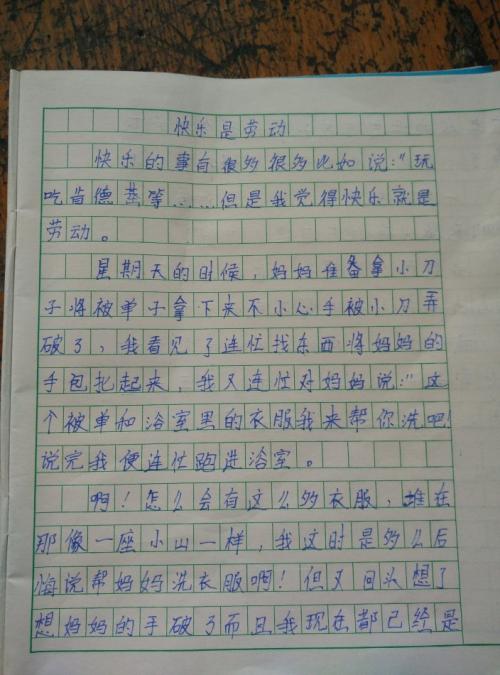 快乐是劳动
快乐的事有很多很多比如说：“玩
吃肯德基等……但是我觉得快乐就是
劳动。
星期天的时候，妈妈准备拿小刀
子将被单子拿下来不小心手被小刀弄
破了，我看见了连忙找东西将妈妈的
手包扎起来，我又连忙对妈妈说：“这
个被单和浴室里的衣服我来帮你洗吧！
说完我便连忙跑进浴室。
啊！怎么会有这么多衣服，堆在
那像一座小山一样，我这时是多么后
悔说帮妈妈洗衣服啊！但又回头想了
想妈妈的手破了而且我现在都已经是